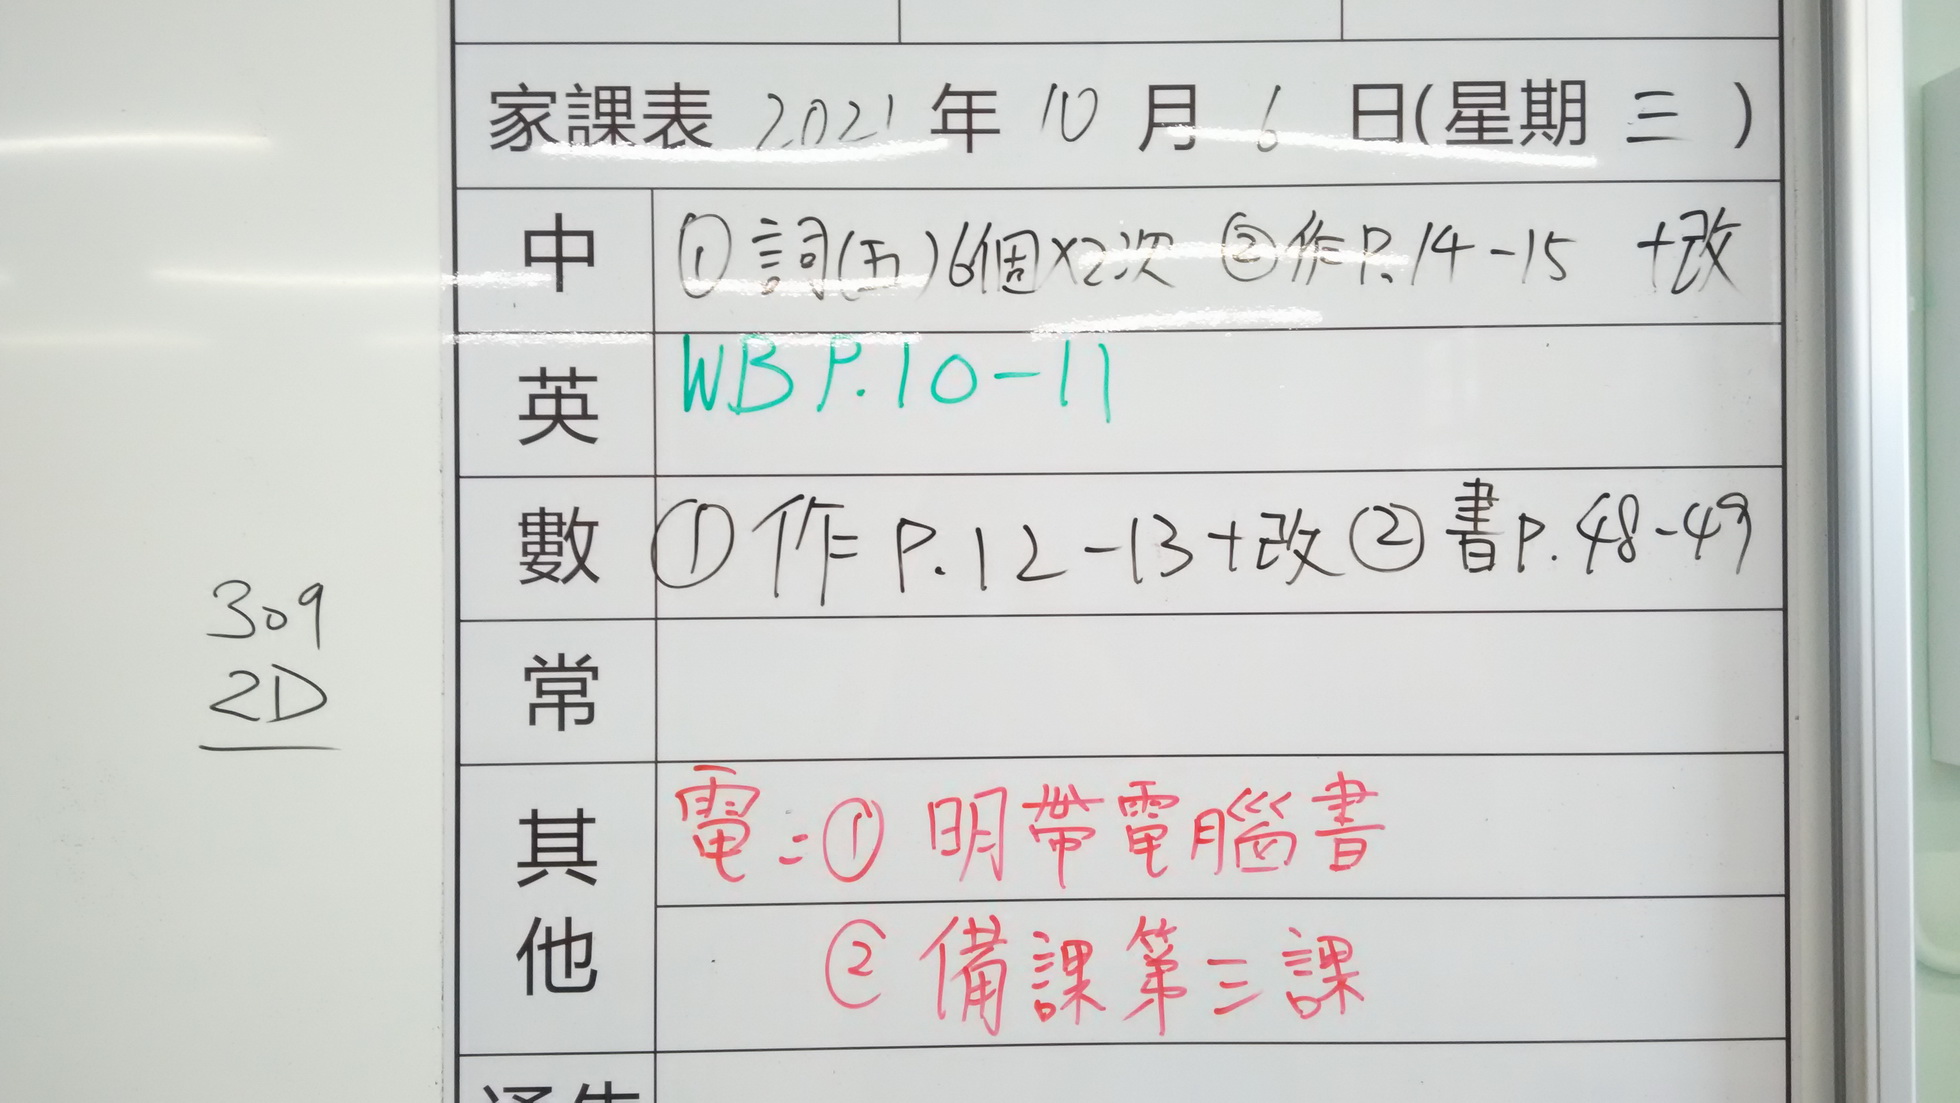 家課表 2021 年 10 月 6 日(星期 三 )
中 ① 詞(五)6個×2次 ②作P.14-15 +改
英 WB P.10-11
數 ①作 P.12-13+改 ②書P.48-49
常
其他 電:① 明帶電腦書
② 備課第三課
309
2D